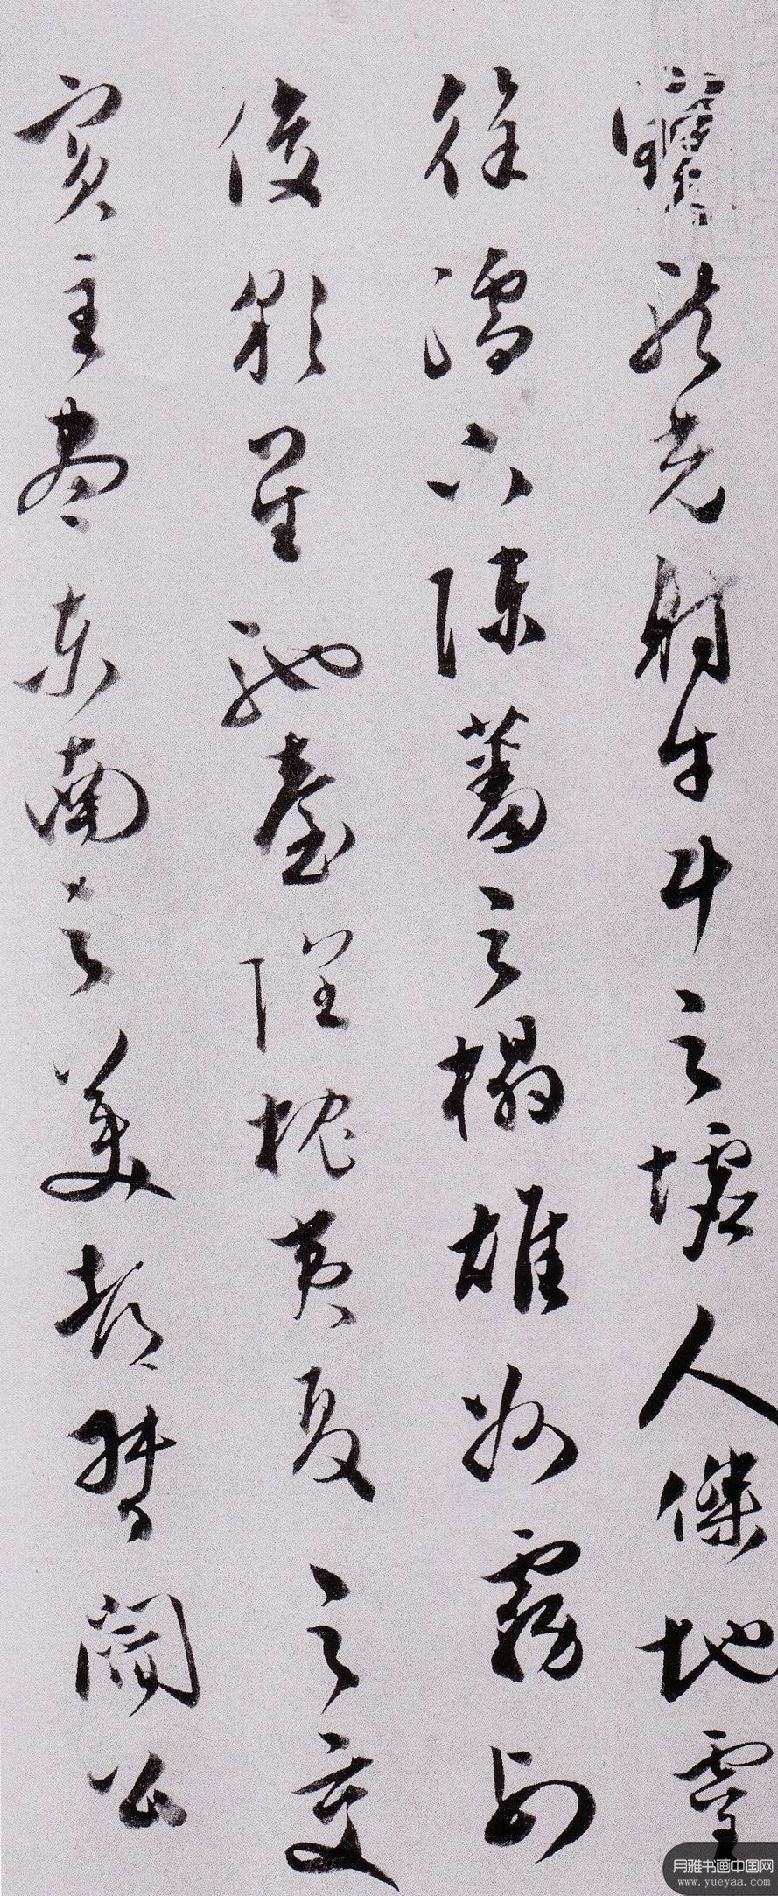 寶龍光射牛斗之墟人傑地靈
徐孺下陳蕃之榻雄州霧列
俊彩星馳臺隍枕夷夏之交
賓主盡東南之美都督閻公
月雅书画中国网
www.yueyaa.com